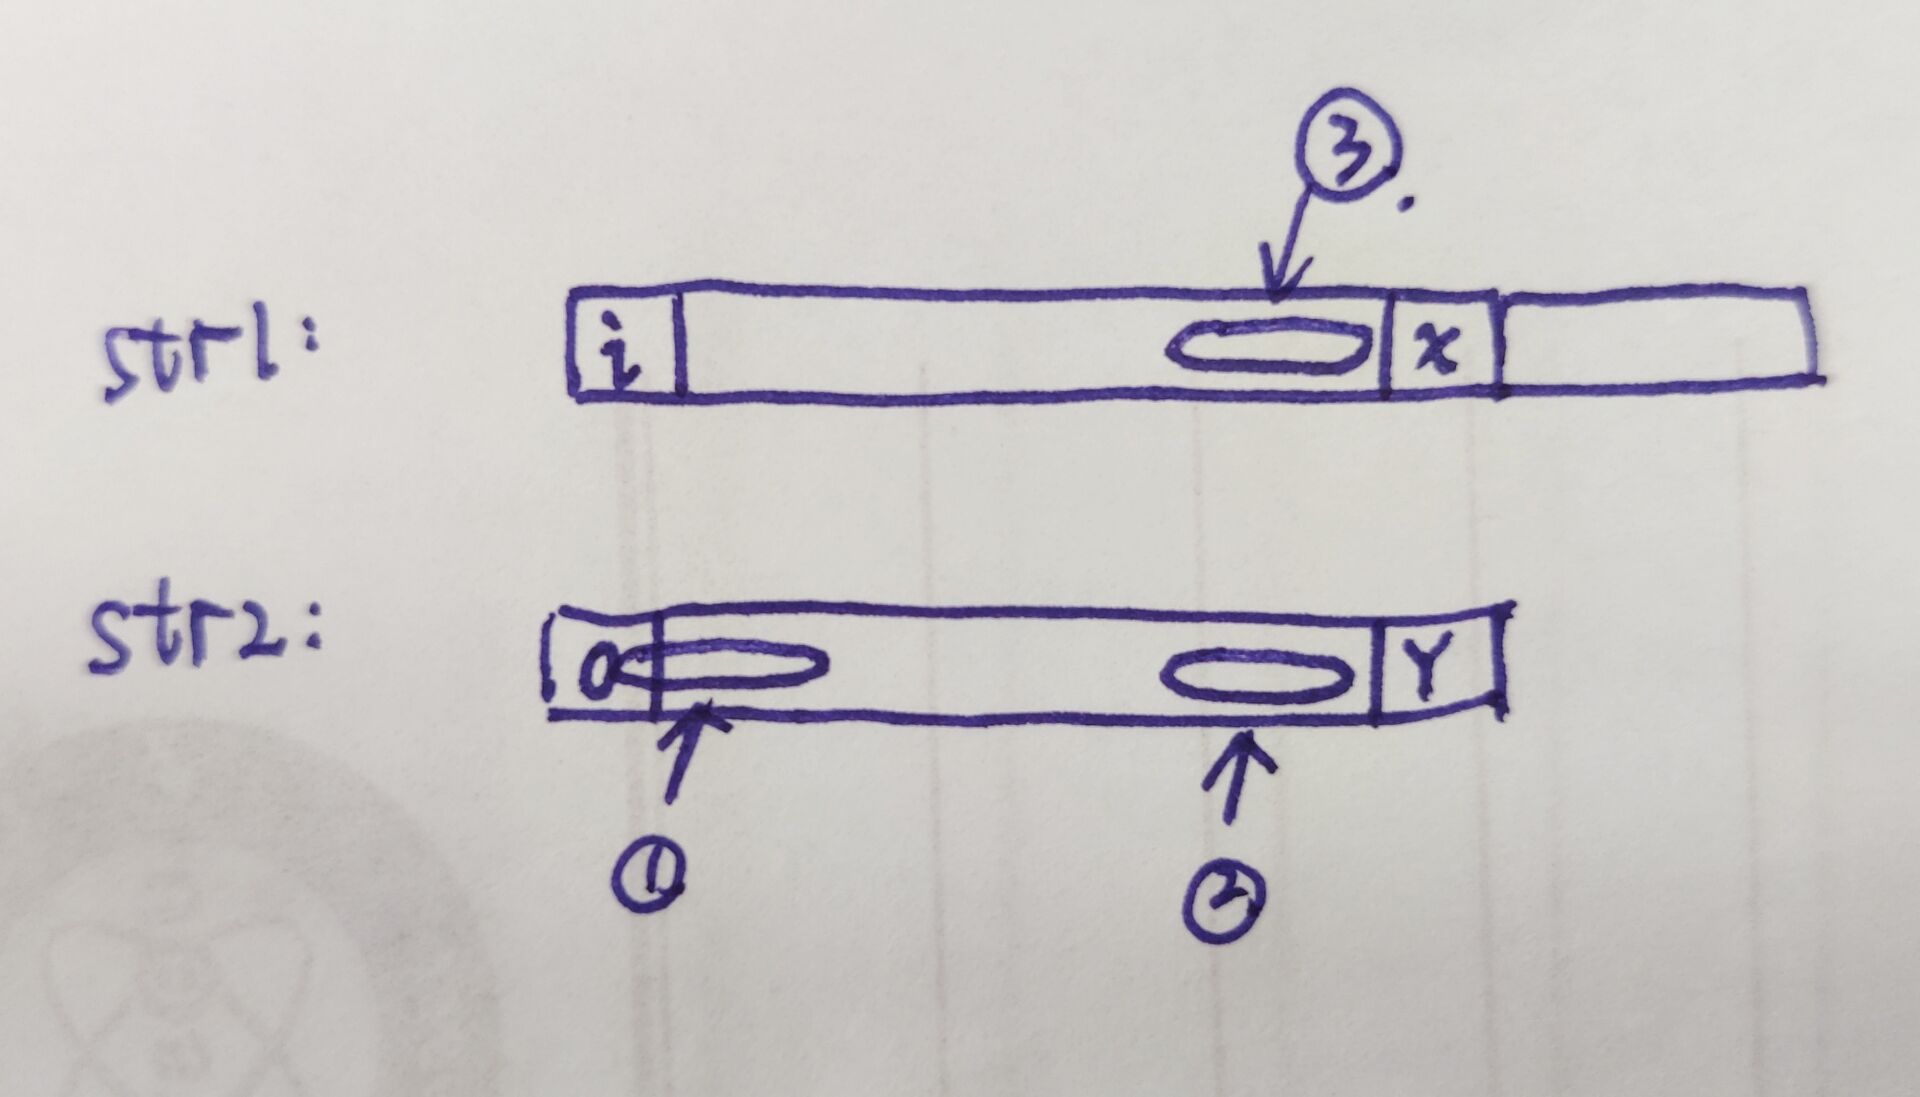 ③.
str1: i x
str2: 0 Y
① ②